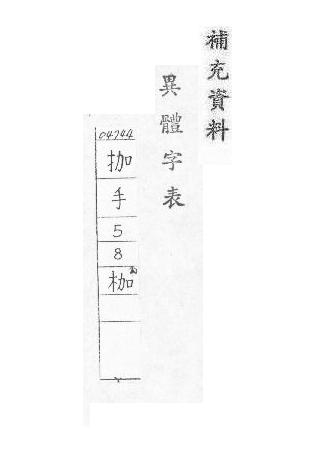 補充資料
異體字表
04744
拁
手
5
8
枷